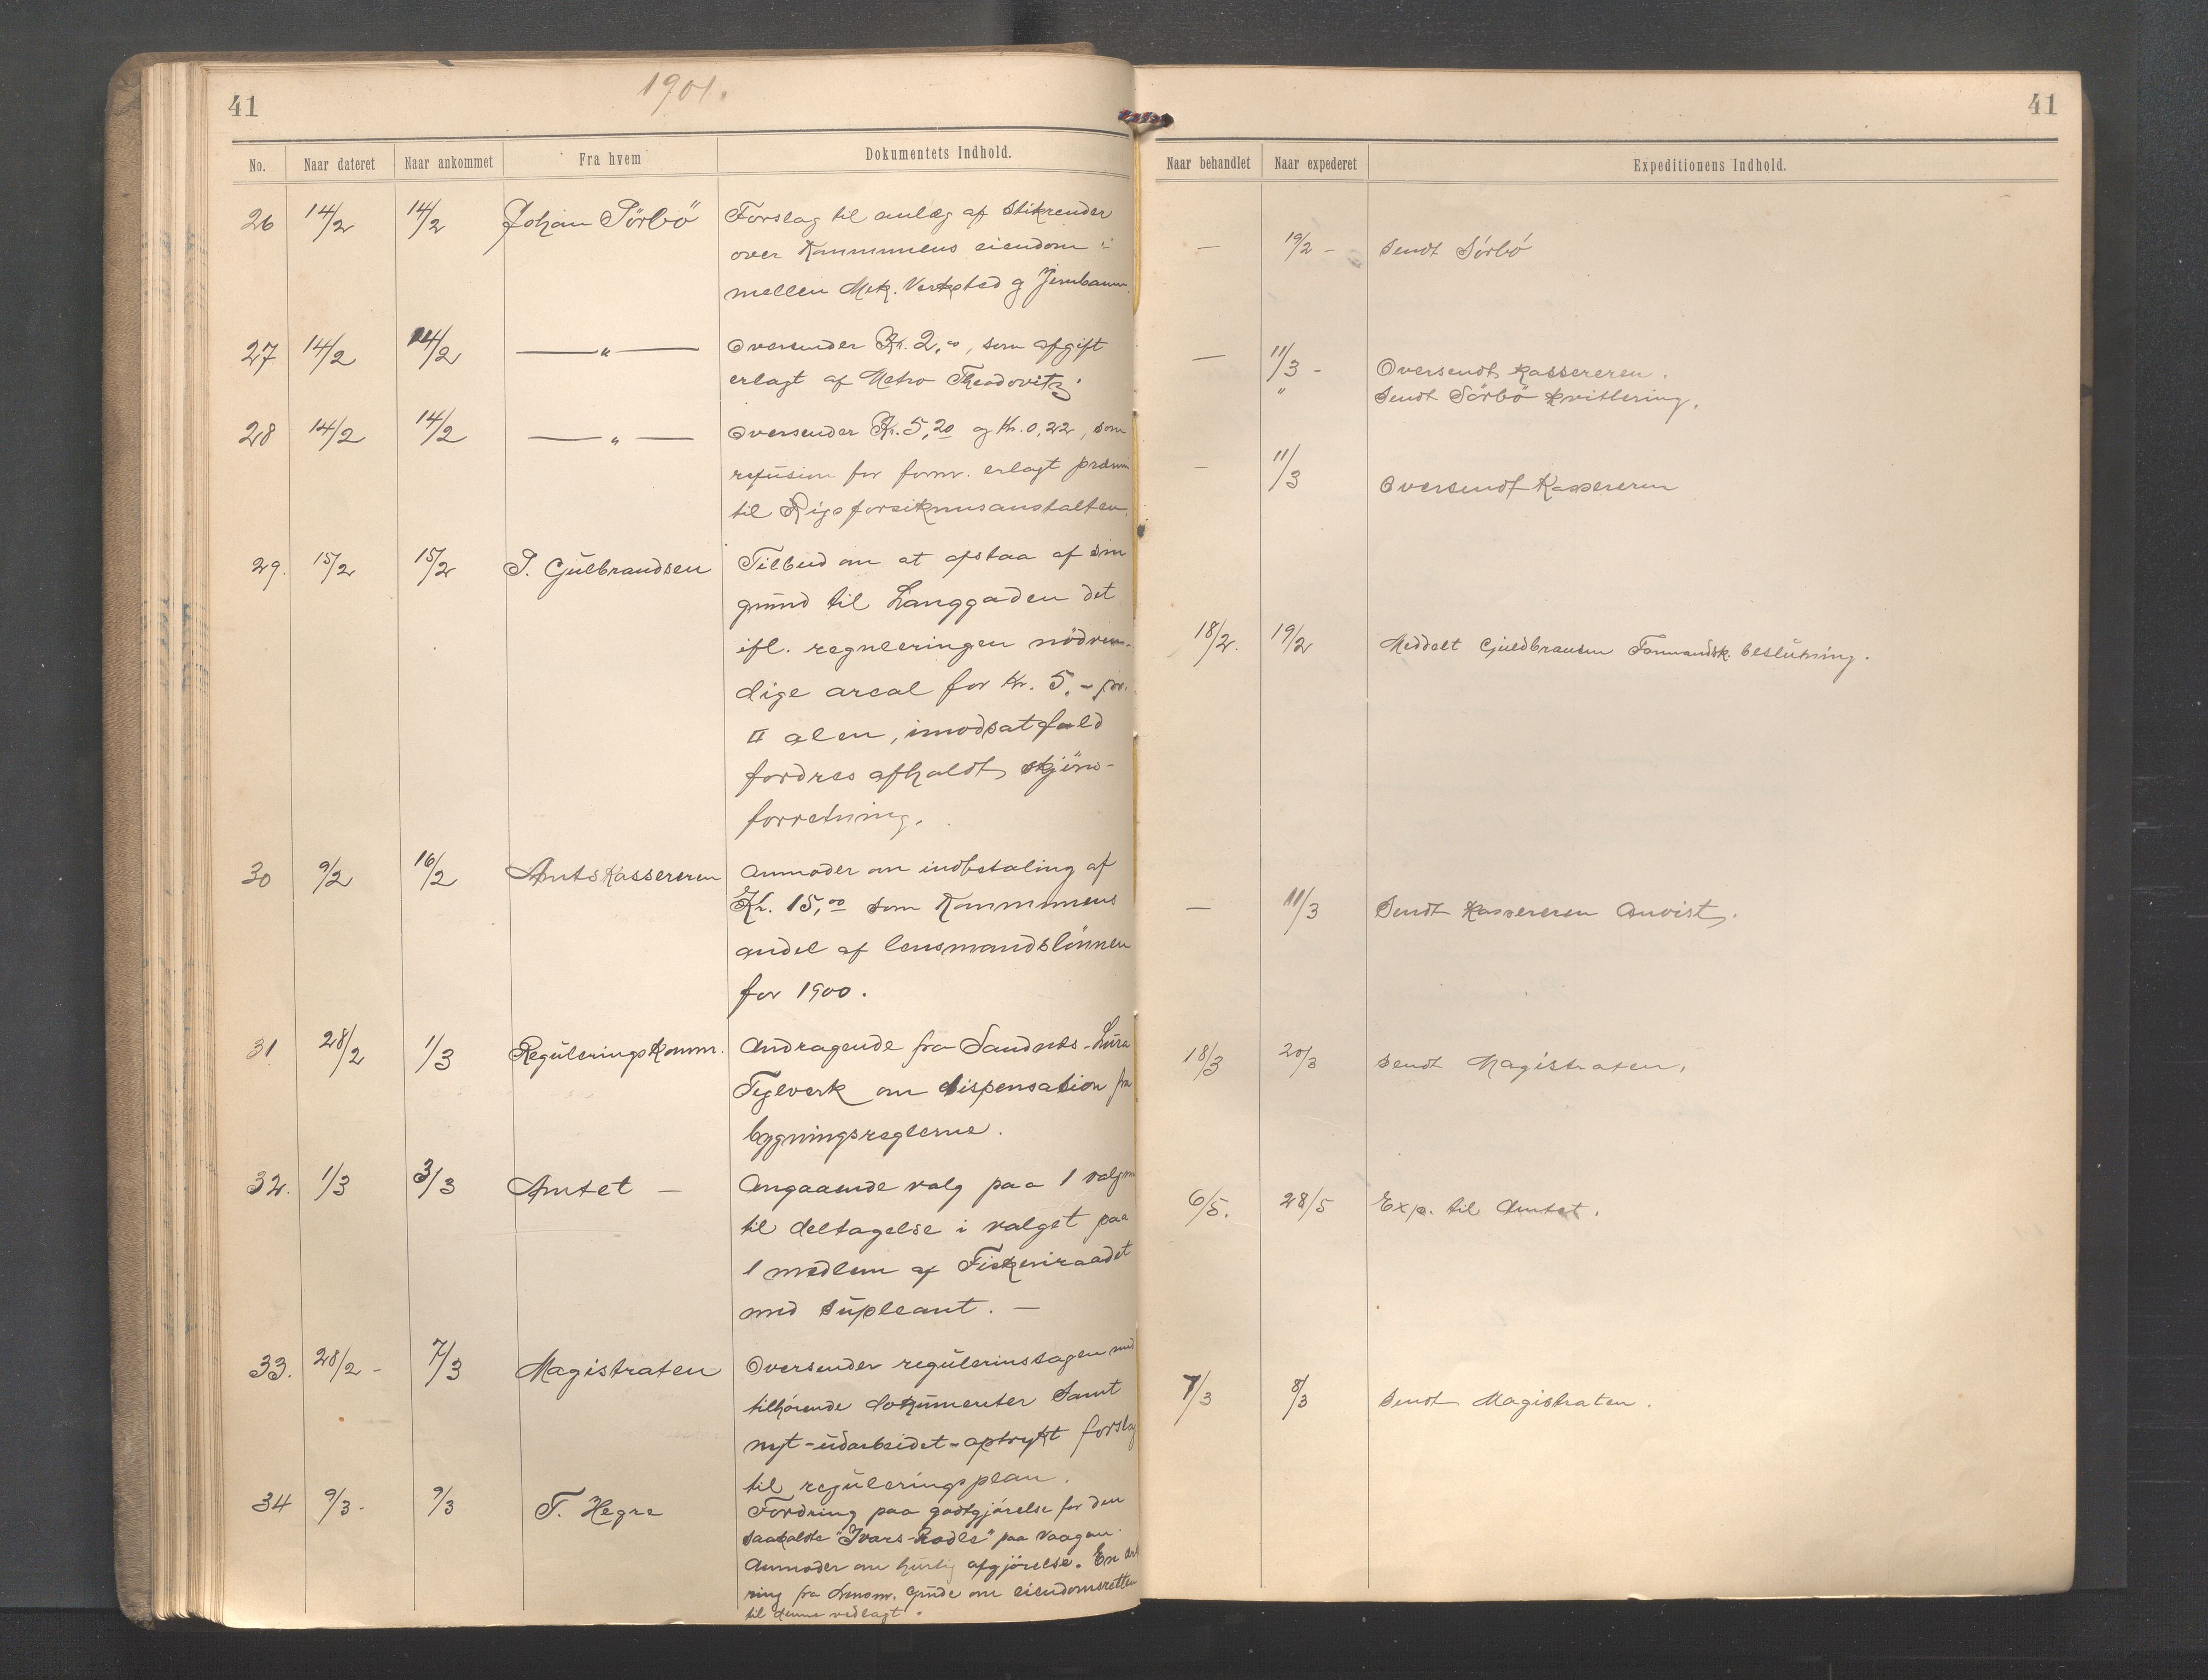 41
1901.
No. Naar dateret Naar ankommet Fra hvem Dokumentets Indhold.
26 14/2 14/2 Johan Sörbö Forslag til anlæg af Stikrender
over Kommunens eiendom i
mellem Mek. Verksted g Jernbanen.
27 14/2 14/2 —„— Oversender Kr. 2,00, som afgift
erlagt af Theodovitz.
28 14/2 14/2 —„— Oversender Kr. 5,20 og Kr. 0,22, som
refusion for forv. erlagt præmie
til Rigsforsikrnusanstalten.
29. 15/2 15/2 P. Gulbrandsen Tilbud om at afstaa af sin
grund til Langgaden det
ifl. reguleringen nödven-
dige areal for Kr. 5,- pr.
□ alen, imodsatfald
fordres afholdt skjöns-
forretning.
30 9/2 16/2 Amtskassereren Anmoder om indbetaling af
Kr. 15,00 som Kommunens
andel af lensmandslönnen
for 1900.
31 28/2 1/3 Reguleringskomm. Andragende fra Sandnes-Lura
Teglverk om dispensation fra
bygningsreglerne.
32. 1/3 3/3 Amtet — Angaaende valg paa 1 valgm
til deltagelse i valget paa
1 medlem af Fiskeriraadet
med supleant. —
33. 28/2 - 7/3 Magistraten Oversender regulerinssagen med
tilhörende dokumenter samt
nyt-udarbeidet-optrykt forslag
til reguleringsplan.
34 9/3 - 9/3 T. Hegre Fordring paa godtgjörelse for den
saakaldte "Ivars-Rodle" paa Vaagen.
Anmoder om hurtig afgjörelse. En erk
ring fra Lensm. Gude om eiendomsretten
til denne vedlagt.
41
Naar behandlet Naar expederet Expeditionens Indhold.
— 19/2 - Sendt Sörbö
— 11/3 - Oversendt Kassereren.
" Sendt Sörbö kvittering.
- 11/3 Oversendt Kassereren
18/2. 19/2 Meddelt Guldbransen Formandsk. beslutning.
— 11/3 Sendt Kassereren Anvist.
18/3 20/3 Sendt Magistraten.
6/5. 28/5 Exp. til Amtet.
7/3 8/3 Sendt Magistraten.